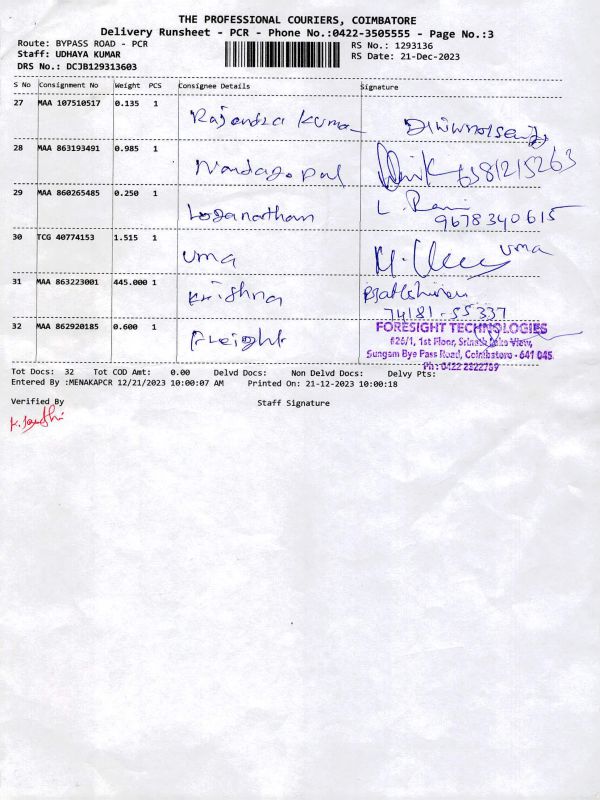 THE PROFESSIONAL COURIERS, COIMBATORE
Delivery Runsheet - PCR - Phone No.:0422-3505555 - Page No.:3
Route: BYPASS ROAD - PCR RS No.: 1293136
Staff: UDHAYA KUMAR RS Date: 21-Dec-2023
DRS No.: DCJB129313603
S No Consignment No Weight PCS Consignee Details Signature
27 MAA 107510517 0.135 1 Rajendra Kuma
28 MAA 863193491 0.985 1 Nandagopal 6381215263
29 MAA 860265485 0.250 1 Loganathan L. Rani
9678340615
30 TCG 40774153 1.515 1 uma uma
31 MAA 863223001 445.000 1 Krishna
74181-55337
32 MAA 862920185 0.600 1 Freight FORESIGHT TECHNOLOGIES
#26/1, 1st Floor, Srinath Lake View,
Sungam Bye Pass Road, Coimbatore - 641 045.
Ph: 0422 2322739
Tot Docs: 32 Tot COD Amt: 0.00 Delvd Docs: Non Delvd Docs: Delvy Pts:
Entered By :MENAKAPCR 12/21/2023 10:00:07 AM Printed On: 21-12-2023 10:00:18
Verified By Staff Signature